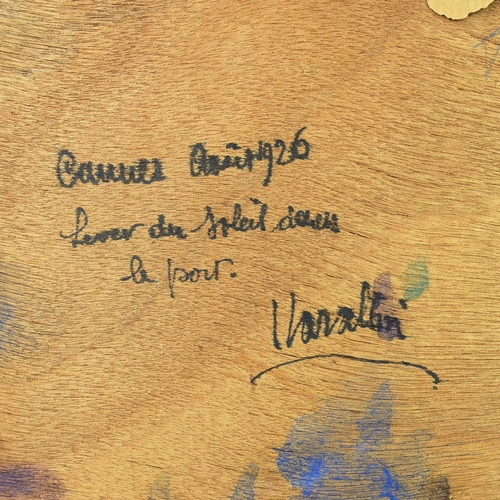 Cannes Août 1926
Lever du Soleil dans
le port.